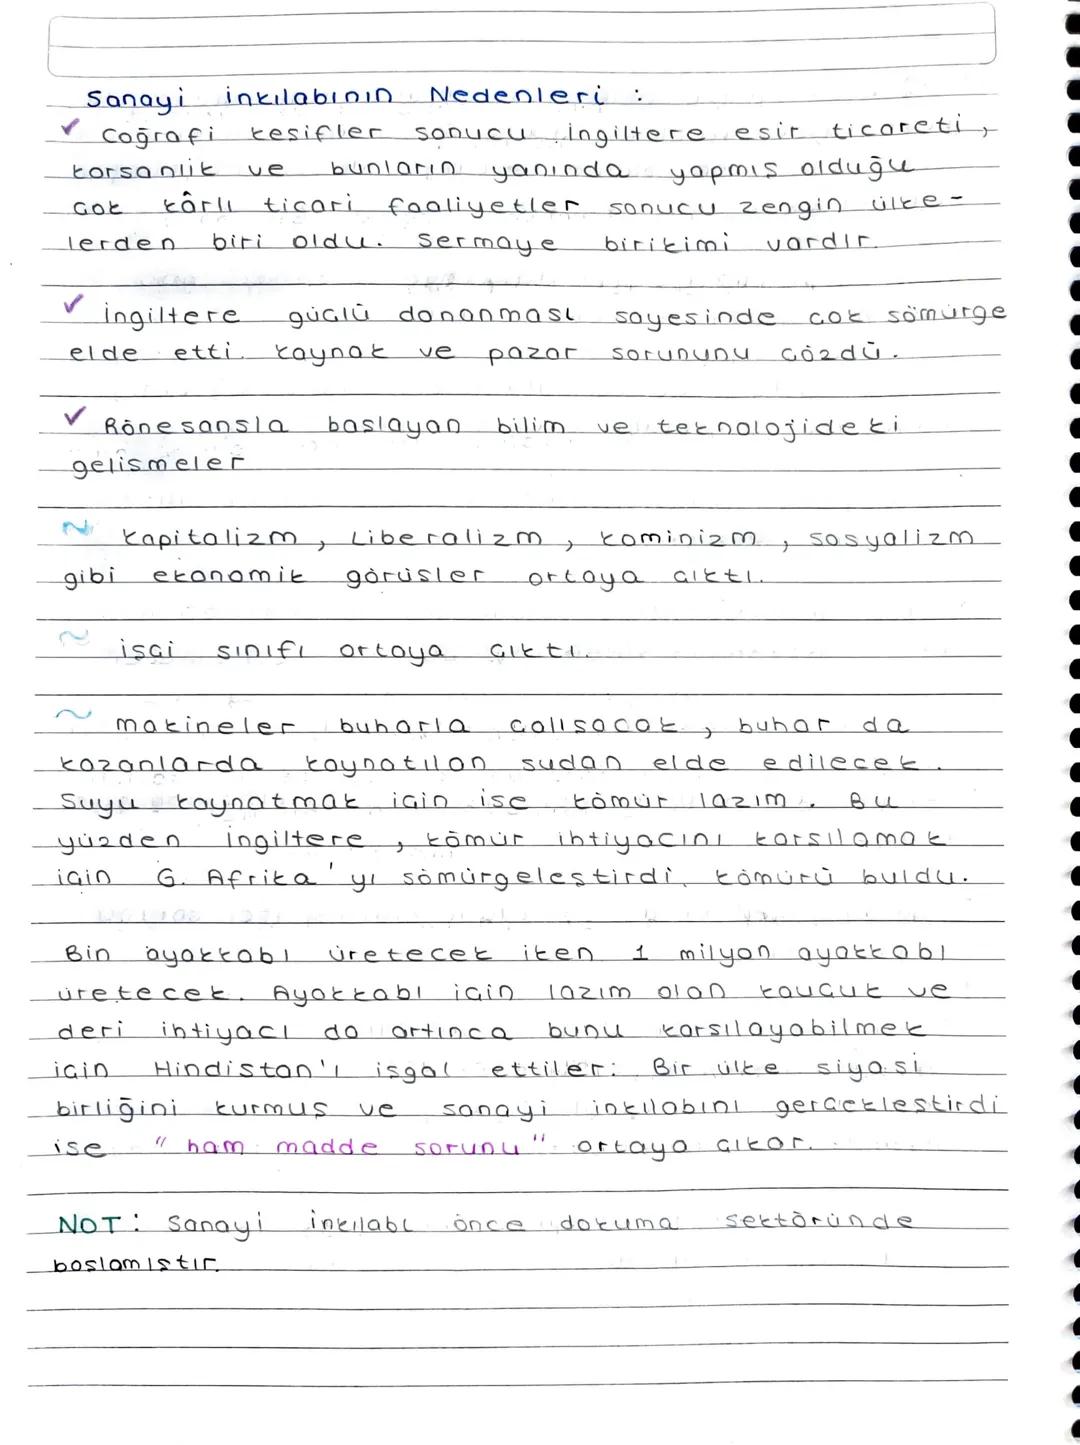 Sanayi inkılabının Nedenleri :
✓ Coğrafi kesifler sonucu ingiltere esir ticareti,
korsanlik ve bunların yanında yapmış olduğu
çok kârlı ticari faaliyetler sonucu zengin ülke-
lerden biri oldu. Sermaye birikimi vardır.
✓ İngiltere güçlü donanması sayesinde çok sömürge
elde etti. kaynak ve pazar sorununu çözdü.
✓ Rönesansla baslayan bilim ve teknolojideki
gelismeler
~ kapitalizm, Liberalizm, kominizm, sosyalizm
gibi ekonomik görüsler ortaya çıktı.
~ işçi sınıfı ortaya çıktı.
~ makineler buharla çalısacak, buhar da
kazanlarda kaynatılan sudan elde edilecek.
Suyu kaynatmak için ise kömür lazım. Bu
yüzden ingiltere, kömür ihtiyacını karsılamak
için G. Afrika'yı sömürgelestirdi, kömürü buldu.
Bin ayakkabı üretecek iken 1 milyon ayakkabı
üretecek. Ayakkabı için lazım olan kauçuk ve
deri ihtiyacı da artınca bunu karsılayabilmek
için Hindistan'ı isgal ettiler. Bir ülke siyasi
birliğini kurmus ve sanayi inkılabını gerçeklestirdi
ise "ham madde sorunu" ortaya çıkar.
NOT: Sanayi inkılabı önce dokuma sektöründe
baslamıstır.